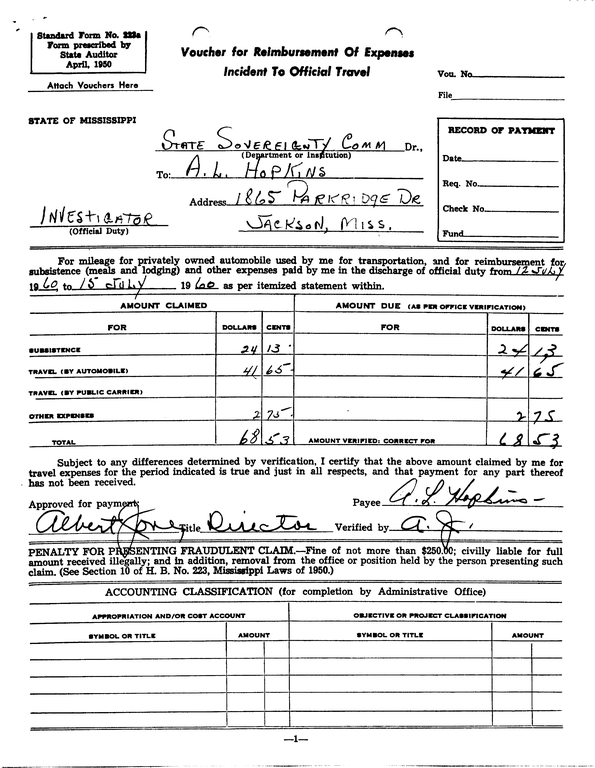 Standard Form No. 223a
Form prescribed by
State Auditor
April, 1950
Attach Vouchers Here
Voucher for Reimbursement Of Expenses
Incident To Official Travel
Vou. No.
File
STATE OF MISSISSIPPI
STATE SOVEREIGNTY COMM Dr.,
(Department or Institution)
To: A. L. HOPKINS
Address 1865 PARKRIDGE DR
JACKSON, MISS.
INVESTIGATOR
(Official Duty)
RECORD OF PAYMENT
Date
Req. No.
Check No.
Fund
For mileage for privately owned automobile used by me for transportation, and for reimbursement for
subsistence (meals and lodging) and other expenses paid by me in the discharge of official duty from 12 JULY
1960, to 15 JULY 1960 as per itemized statement within.
AMOUNT CLAIMED AMOUNT DUE (AS PER OFFICE VERIFICATION)
FOR DOLLARS CENTS FOR DOLLARS CENTS
SUBSISTENCE 24 13 24 13
TRAVEL (BY AUTOMOBILE) 41 65 41 65
TRAVEL (BY PUBLIC CARRIER)
OTHER EXPENSES 2 75 2 75
TOTAL 68 53 AMOUNT VERIFIED: CORRECT FOR 68 53
Subject to any differences determined by verification, I certify that the above amount claimed by me for
travel expenses for the period indicated is true and just in all respects, and that payment for any part thereof
has not been received.
Approved for payment: Payee A. L. Hopkins
Albert Jones Title Director Verified by A. J.
PENALTY FOR PRESENTING FRAUDULENT CLAIM.—Fine of not more than $250.00; civilly liable for full
amount received illegally; and in addition, removal from the office or position held by the person presenting such
claim. (See Section 10 of H. B. No. 223, Mississippi Laws of 1950.)
ACCOUNTING CLASSIFICATION (for completion by Administrative Office)
APPROPRIATION AND/OR COST ACCOUNT OBJECTIVE OR PROJECT CLASSIFICATION
SYMBOL OR TITLE AMOUNT SYMBOL OR TITLE AMOUNT
—1—